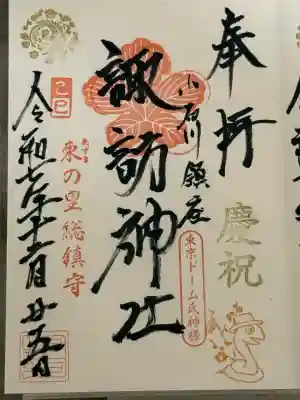 奉拝
慶祝
小石川鎮座
東京ドーム氏神様
諏訪神社
乙巳
あずま
東の里総鎮守
令和七年十一月廿五日